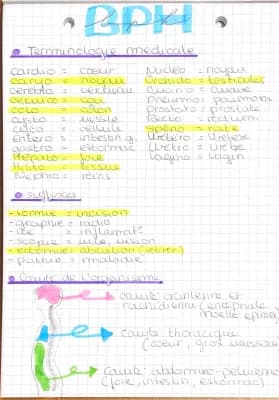 BPH
Terminologie médicale
cardio = cœur
caryo = noyau
cérébro = cerveau
cervico = cou
colo = côlon
cysto = vessie
cyto = cellule
entéro = intestin g.
gastro = estomac
Hépato = foie
Histo = tissus
Néphro = reins
Nucléo = noyau
orchido = testicules
Ovario = ovaire
Pneumo = poumons
Prostato = prostate
Recto = rectum
spléno = rate
Urétéro = uretère
Urétro = urètre
Vagino = vagin
suffixes
-tomie = incision
-graphie = radio
-ite = inflamat°
-scopie = vue, vision
-ectomie = ablation (retirer)
-pathie = maladie
Cavité de l'organisme
cavité crânienne et
rachidienne (encéphale
moelle épinière)
cavité thoracique
(cœur, gros vaisseaux
Cavité abdomino-pelvienne
(foie, intestin, estomac)